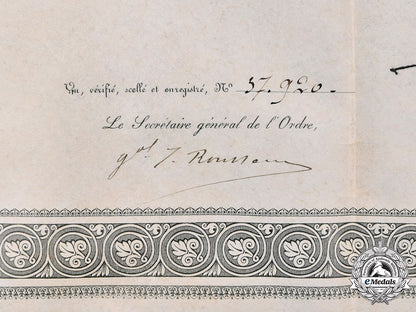 Vu, vérifié, scellé et enregistré, Nº 37.920.-
Le Secrétaire général de l'Ordre,
gal J. Rousseau